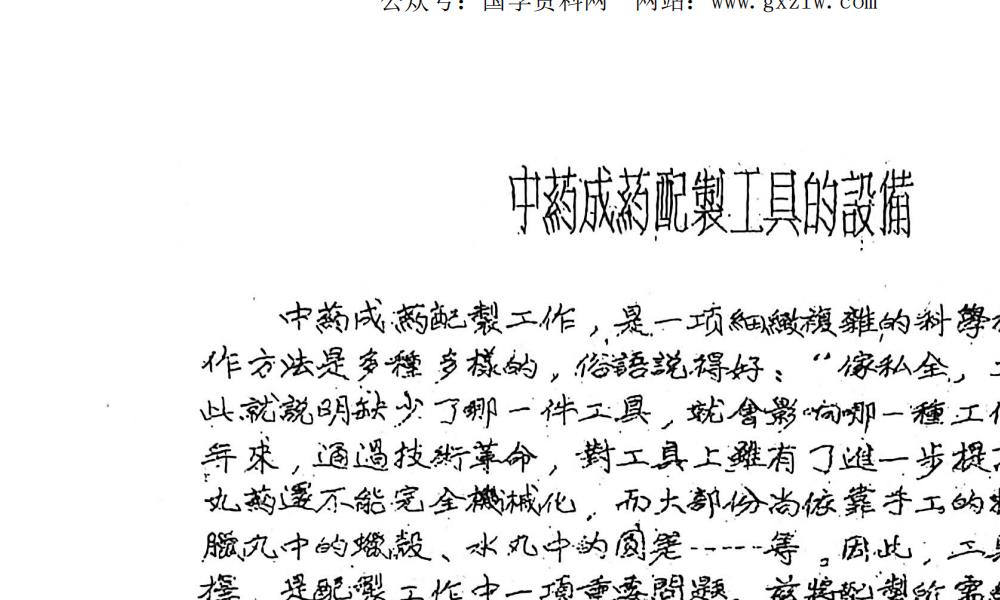 公众号：国学资料网 网站：www.gxzlw.com
中药成药配製工具的設備
中药成药配製工作，是一项細緻複雜的科學
作方法是多種多樣的，俗語説得好："傢私全，
此就説明缺少了哪一件工具，就會影响哪一種工作
年來，通過技術革命，對工具上雖有了進一步提
丸药還不能完全機械化，而大部份尚依靠手工的
臘丸中的蠟殼、水丸中的圆 -----等。因此，工具
擇，是配製工作中一項重要問題。茲將配製所需